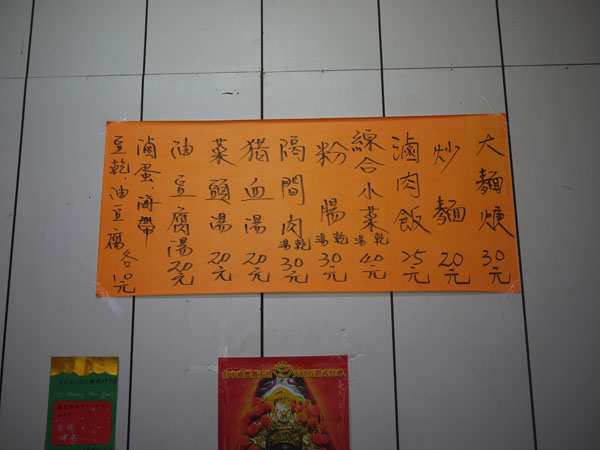 大麵焿 30元
炒麵 20元
滷肉飯 25元
綜合小菜 乾湯 40元
粉腸 乾湯 30元
隔間肉 乾湯 30元
猪血湯 20元
菜頭湯 20元
油豆腐湯 20元
滷蛋、海帶
豆乾、油豆腐 各10元